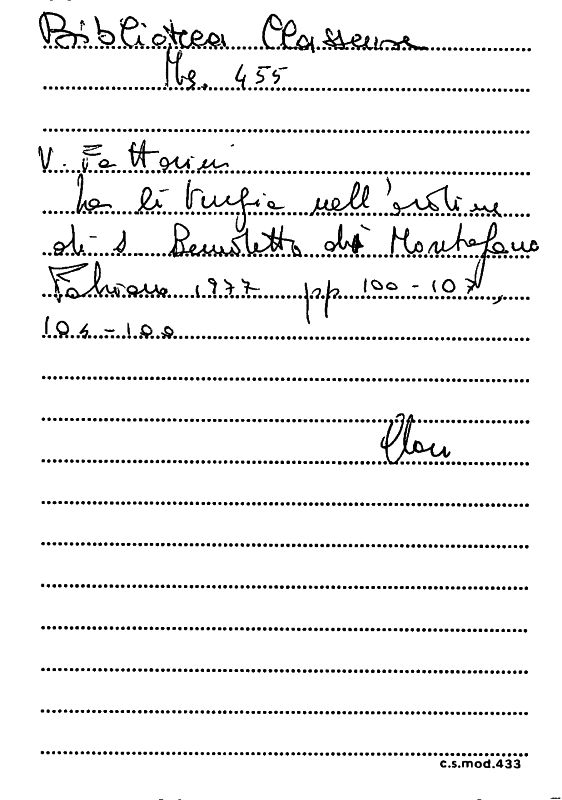 Biblioteca Classense
Ms. 455
V. Fattorini
La liturgia nell'ordine
di S Benedetto di Montefano
Fabriano 1977 pp 100-107,
-100
c.s.mod.433